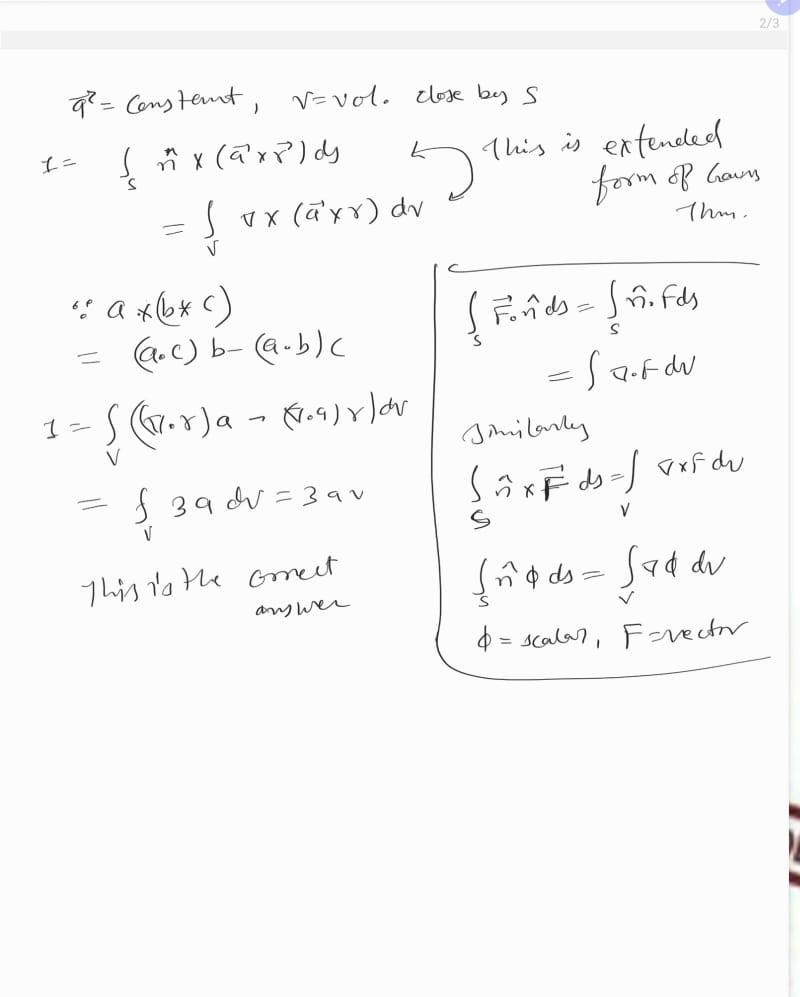 2/3
a⃗ = Constemt, V=vol. close by S
I = ∫_S n̂ × (a⃗ × r⃗) ds
This is extended
form of Gauss
Thm.
= ∫_V ∇ × (a⃗ × r) dv
∵ a × (b × c)
= (a.c) b - (a.b) c
I = ∫_V ((∇.r) a - (∇.a) r) dv
= ∫_V 3 a dv = 3 a v
This is the correct
answer
∫_S F⃗.n̂ ds = ∫_S n̂.F ds
= ∫ ∇.F dv
Similarly
∫_S n̂ × F⃗ ds = ∫_V ∇ × F dv
∫_S n̂ ϕ ds = ∫_V ∇ϕ dv
ϕ = scalar, F = vector